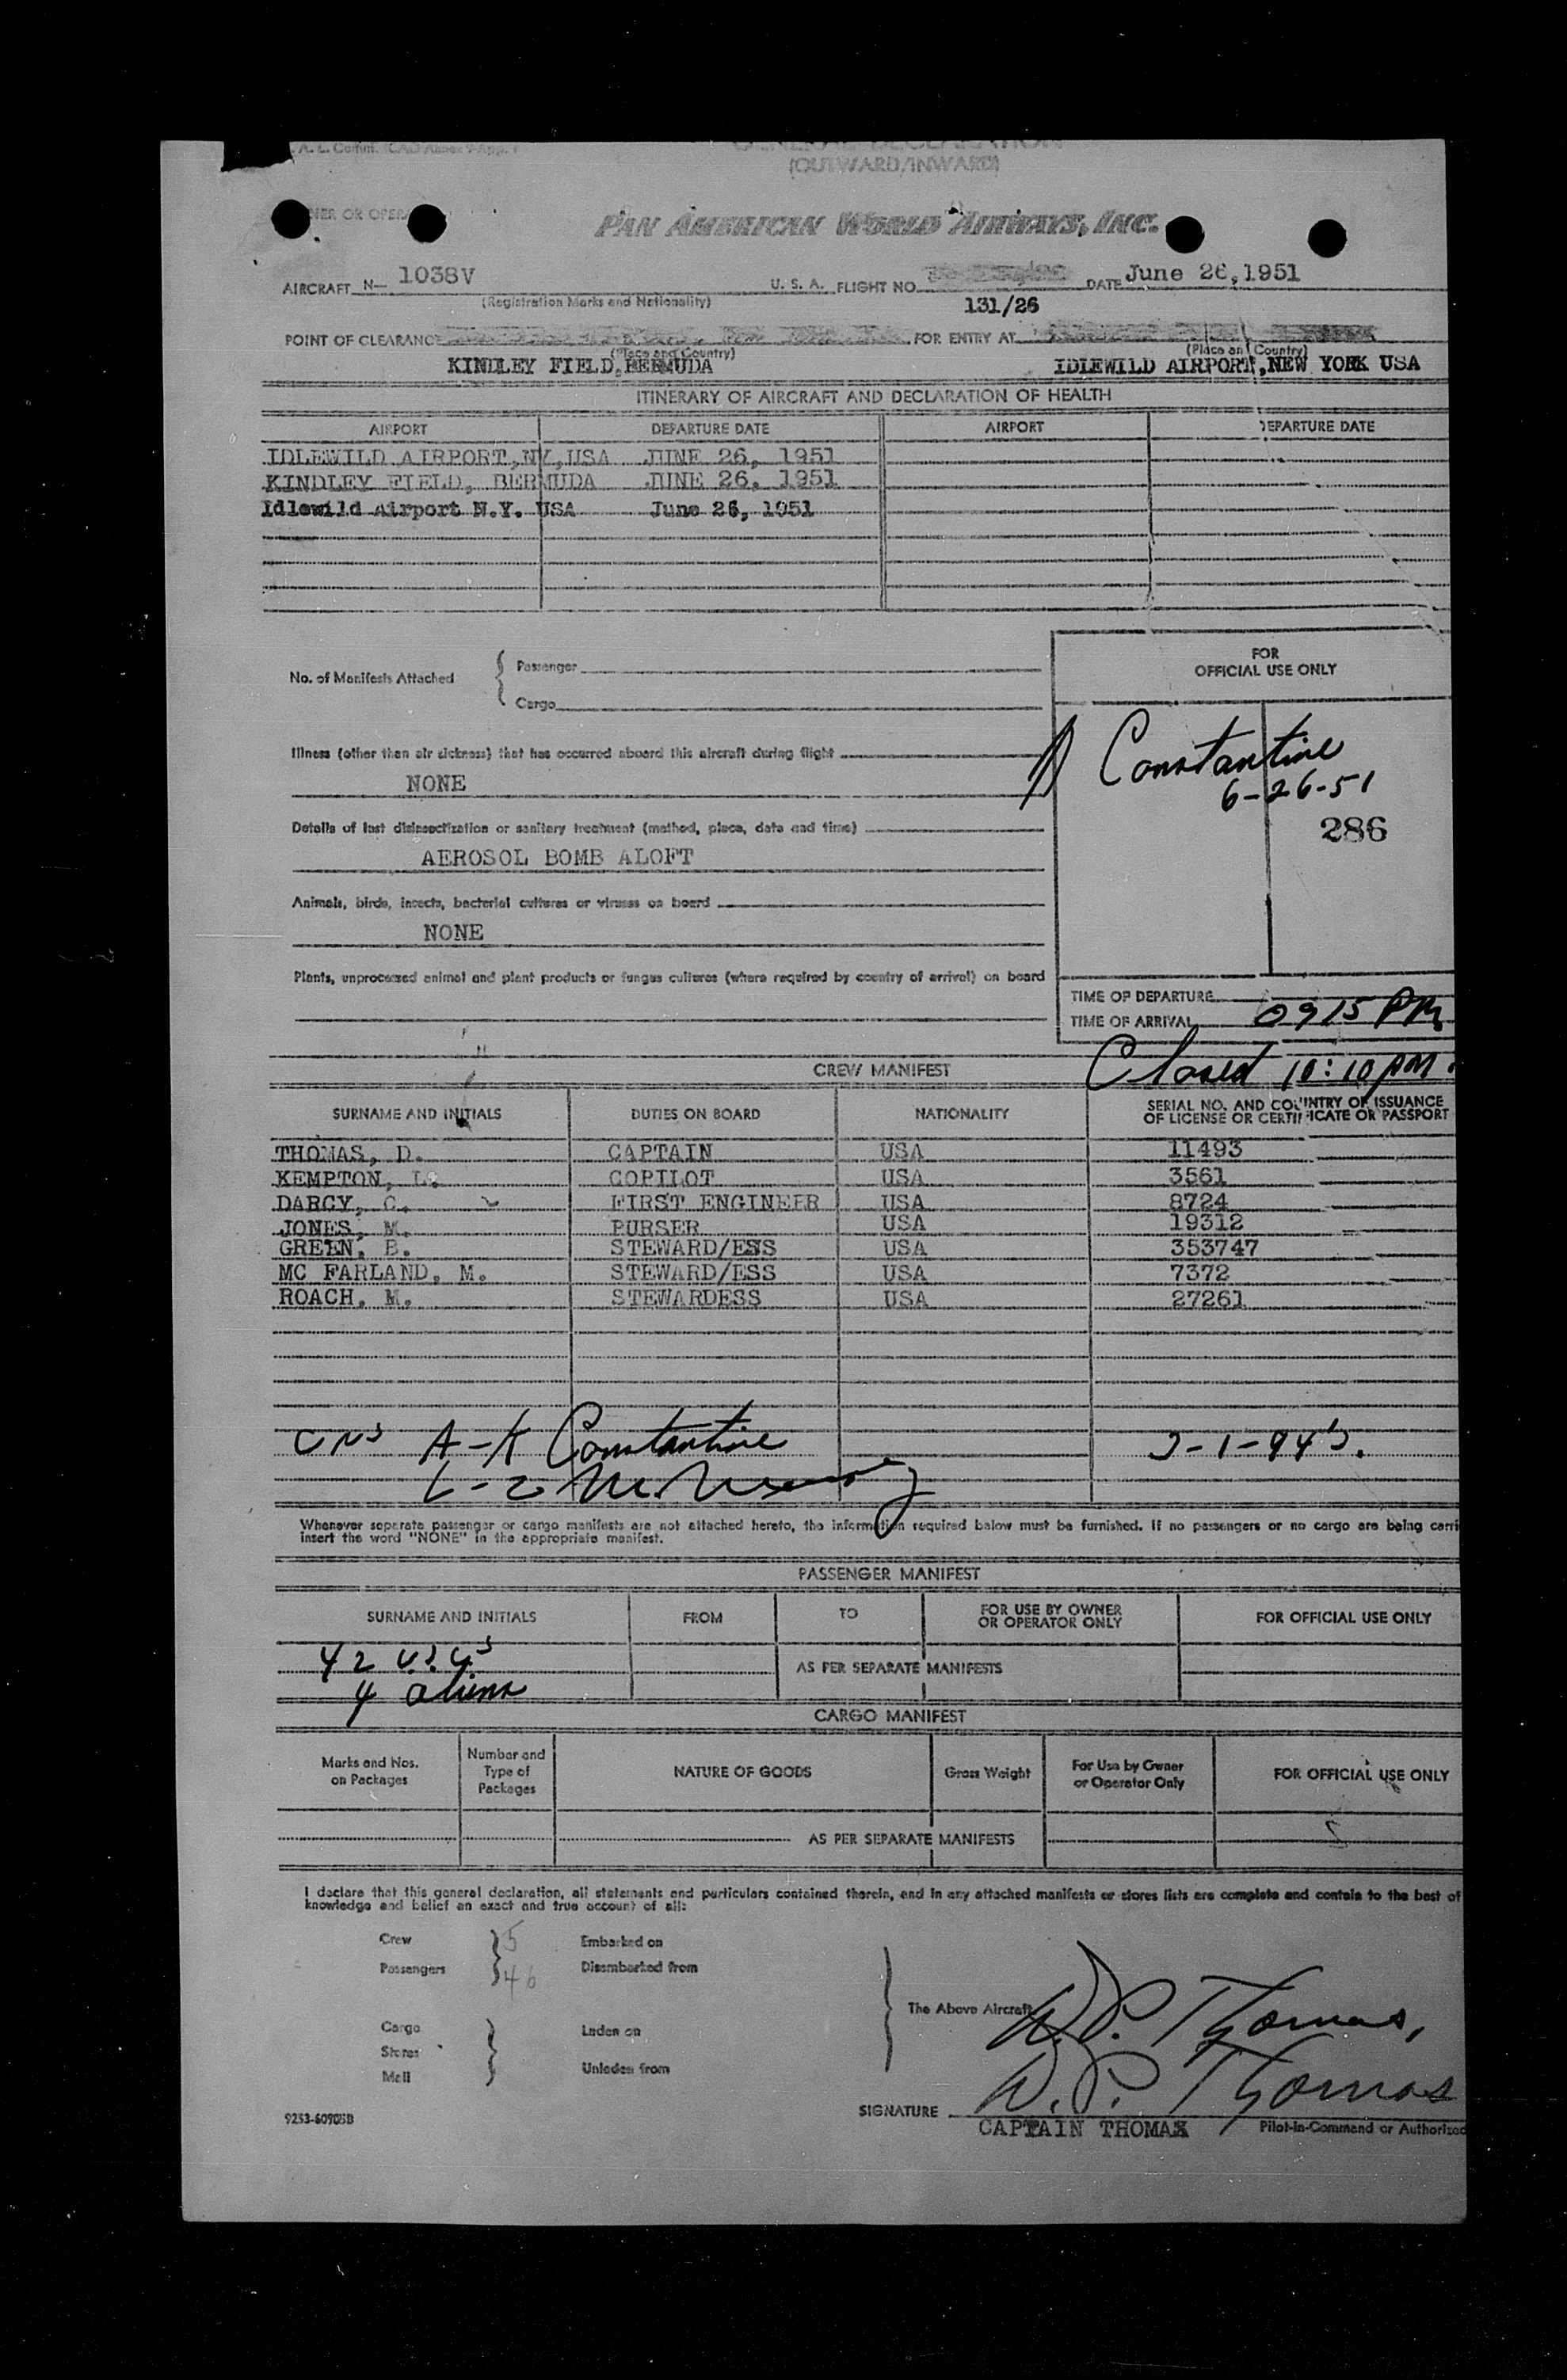 (OUTWARD/INWARD)
PAN AMERICAN WORLD AIRWAYS, INC.
AIRCRAFT N— 1038V U. S. A. FLIGHT NO. DATE June 26, 1951
(Registration Marks and Nationality) 131/26
POINT OF CLEARANCE FOR ENTRY AT
(Place and Country) (Place and Country)
KINDLEY FIELD, BERMUDA IDLEWILD AIRPORT, NEW YORK USA
ITINERARY OF AIRCRAFT AND DECLARATION OF HEALTH
AIRPORT DEPARTURE DATE AIRPORT DEPARTURE DATE
IDLEWILD AIRPORT, NY, USA JUNE 26, 1951
KINDLEY FIELD, BERMUDA JUNE 26, 1951
Idlewild Airport N.Y. USA June 26, 1951
FOR
OFFICIAL USE ONLY
No. of Manifests Attached { Passenger
Cargo
Constantine
6-26-51
286
Illness (other than air sickness) that has occurred aboard this aircraft during flight
NONE
Details of last disinsectization or sanitary treatment (method, place, date and time)
AEROSOL BOMB ALOFT
Animals, birds, insects, bacterial cultures or viruses on board
NONE
Plants, unprocessed animal and plant products or fungus cultures (where required by country of arrival) on board
TIME OF DEPARTURE
TIME OF ARRIVAL 0915 PM
Closed 10:10 PM.
CREW MANIFEST
SURNAME AND INITIALS DUTIES ON BOARD NATIONALITY SERIAL NO. AND COUNTRY OF ISSUANCE
OF LICENSE OR CERTIFICATE OR PASSPORT
THOMAS, D. CAPTAIN USA 11493
KEMPTON, L. COPILOT USA 3561
DARCY, C. FIRST ENGINEER USA 8724
JONES, M. PURSER USA 19312
GREEN, B. STEWARD/ESS USA 353747
MC FARLAND, M. STEWARD/ESS USA 7372
ROACH, M. STEWARDESS USA 27261
A-K Constantine
L-Z
Whenever separate passenger or cargo manifests are not attached hereto, the information required below must be furnished. If no passengers or no cargo are being carri
insert the word "NONE" in the appropriate manifest.
PASSENGER MANIFEST
SURNAME AND INITIALS FROM TO FOR USE BY OWNER
OR OPERATOR ONLY FOR OFFICIAL USE ONLY
42 U.S.C's
AS PER SEPARATE MANIFESTS
4 aliens
CARGO MANIFEST
Marks and Nos.
on Packages Number and
Type of
Packages NATURE OF GOODS Gross Weight For Use by Owner
or Operator Only FOR OFFICIAL USE ONLY
AS PER SEPARATE MANIFESTS
I declare that this general declaration, all statements and particulars contained therein, and in any attached manifests or stores lists are complete and contain to the best of
knowledge and belief an exact and true account of all:
Crew 5 Embarked on
Passengers 46 Disembarked from
The Above Aircraft D.P. Thomas,
Cargo Laden on
Stores
Mail Unladen from
SIGNATURE D.P. Thomas
9253-60905B
CAPTAIN THOMAS Pilot-in-Command or Authorized